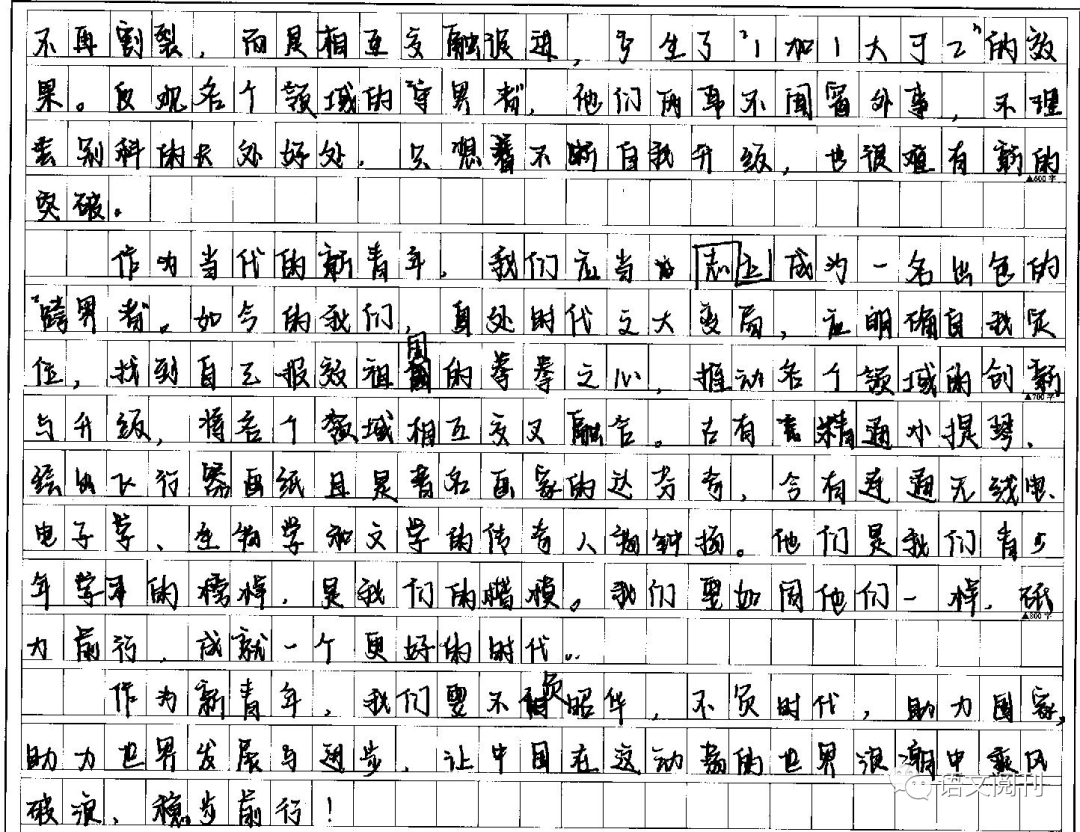 不再割裂，而是相互交融促进，产生了"1加1大于2"的效
果。反观各个领域的"守界者"，他们两耳不闻窗外事，不理
去别科的长处好处，只想着不断自我升级，也很难有新的
▲600字
突破。
作为当代的新青年，我们应当志立成为一名出色的
"跨界者"。如今的我们，身处时代之大变局，应明确自我定
位，找到自己报效祖国的拳拳之心，推动各个领域的创新
▲700字
与升级，将各个领域相互交叉融合。古有精通小提琴、
绘出飞行器画纸且是著名画家的达芬奇，今有连通无线电、
电子学、生物学和文学的传奇人物钟扬。他们是我们青少
年学习的榜样，是我们的楷模。我们要如同他们一样，砥
▲800字
力前行，成就一个更好的时代。
作为新青年，我们要不负韶华，不负时代，助力国家，
助力世界发展与进步，让中国在这动荡的世界浪潮中乘风
破浪，稳步前行！
语文阅刊